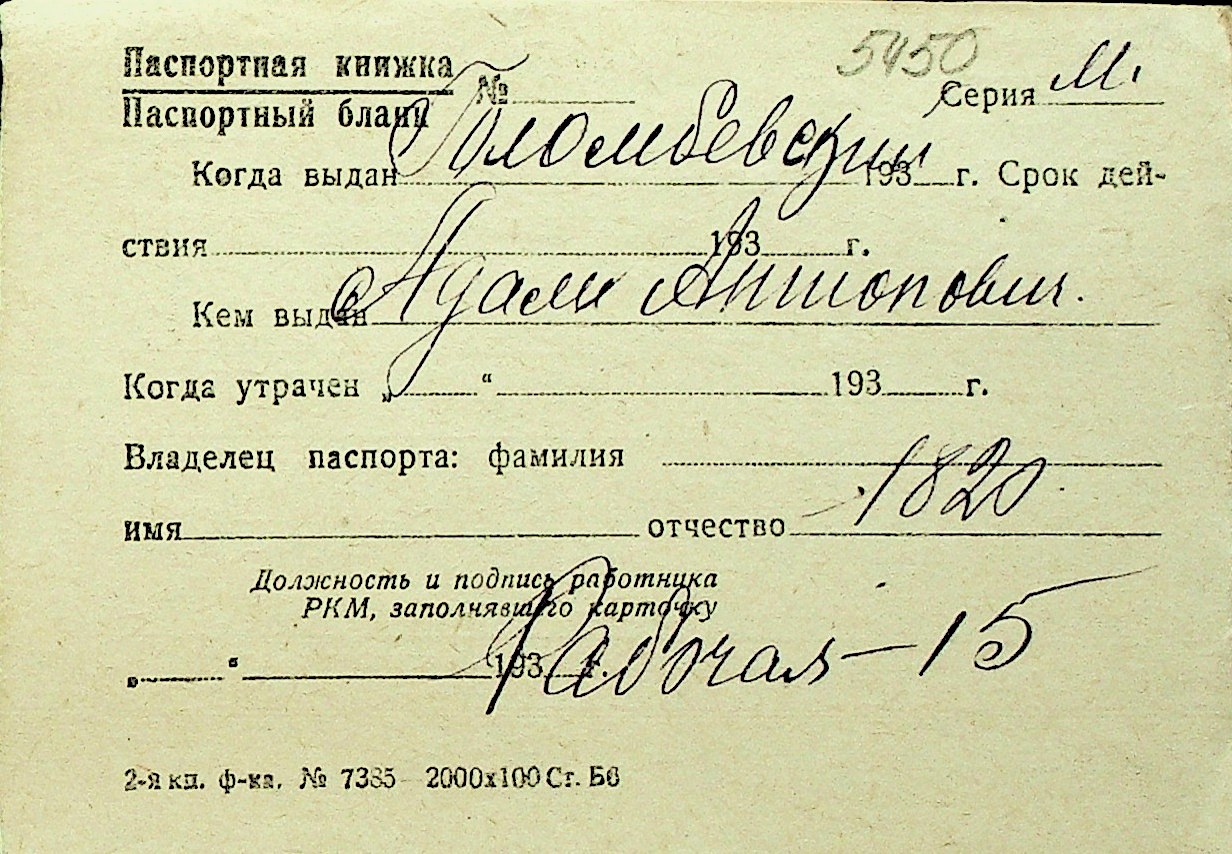 5450
Паспортная книжка
Паспортный бланк № Серия М.
Голомбевский
Когда выдан 193 г. Срок дей-
ствия 193 г.
Адам Антонович.
Кем выдан
Когда утрачен „ “ 193 г.
Владелец паспорта: фамилия
1820
имя отчество
Должность и подпись работника
РКМ, заполнявшего карточку
Рабочая – 15
„ “ 193 г.
2-я кп. ф-ка. № 7385 2000х100 Ст. Б6